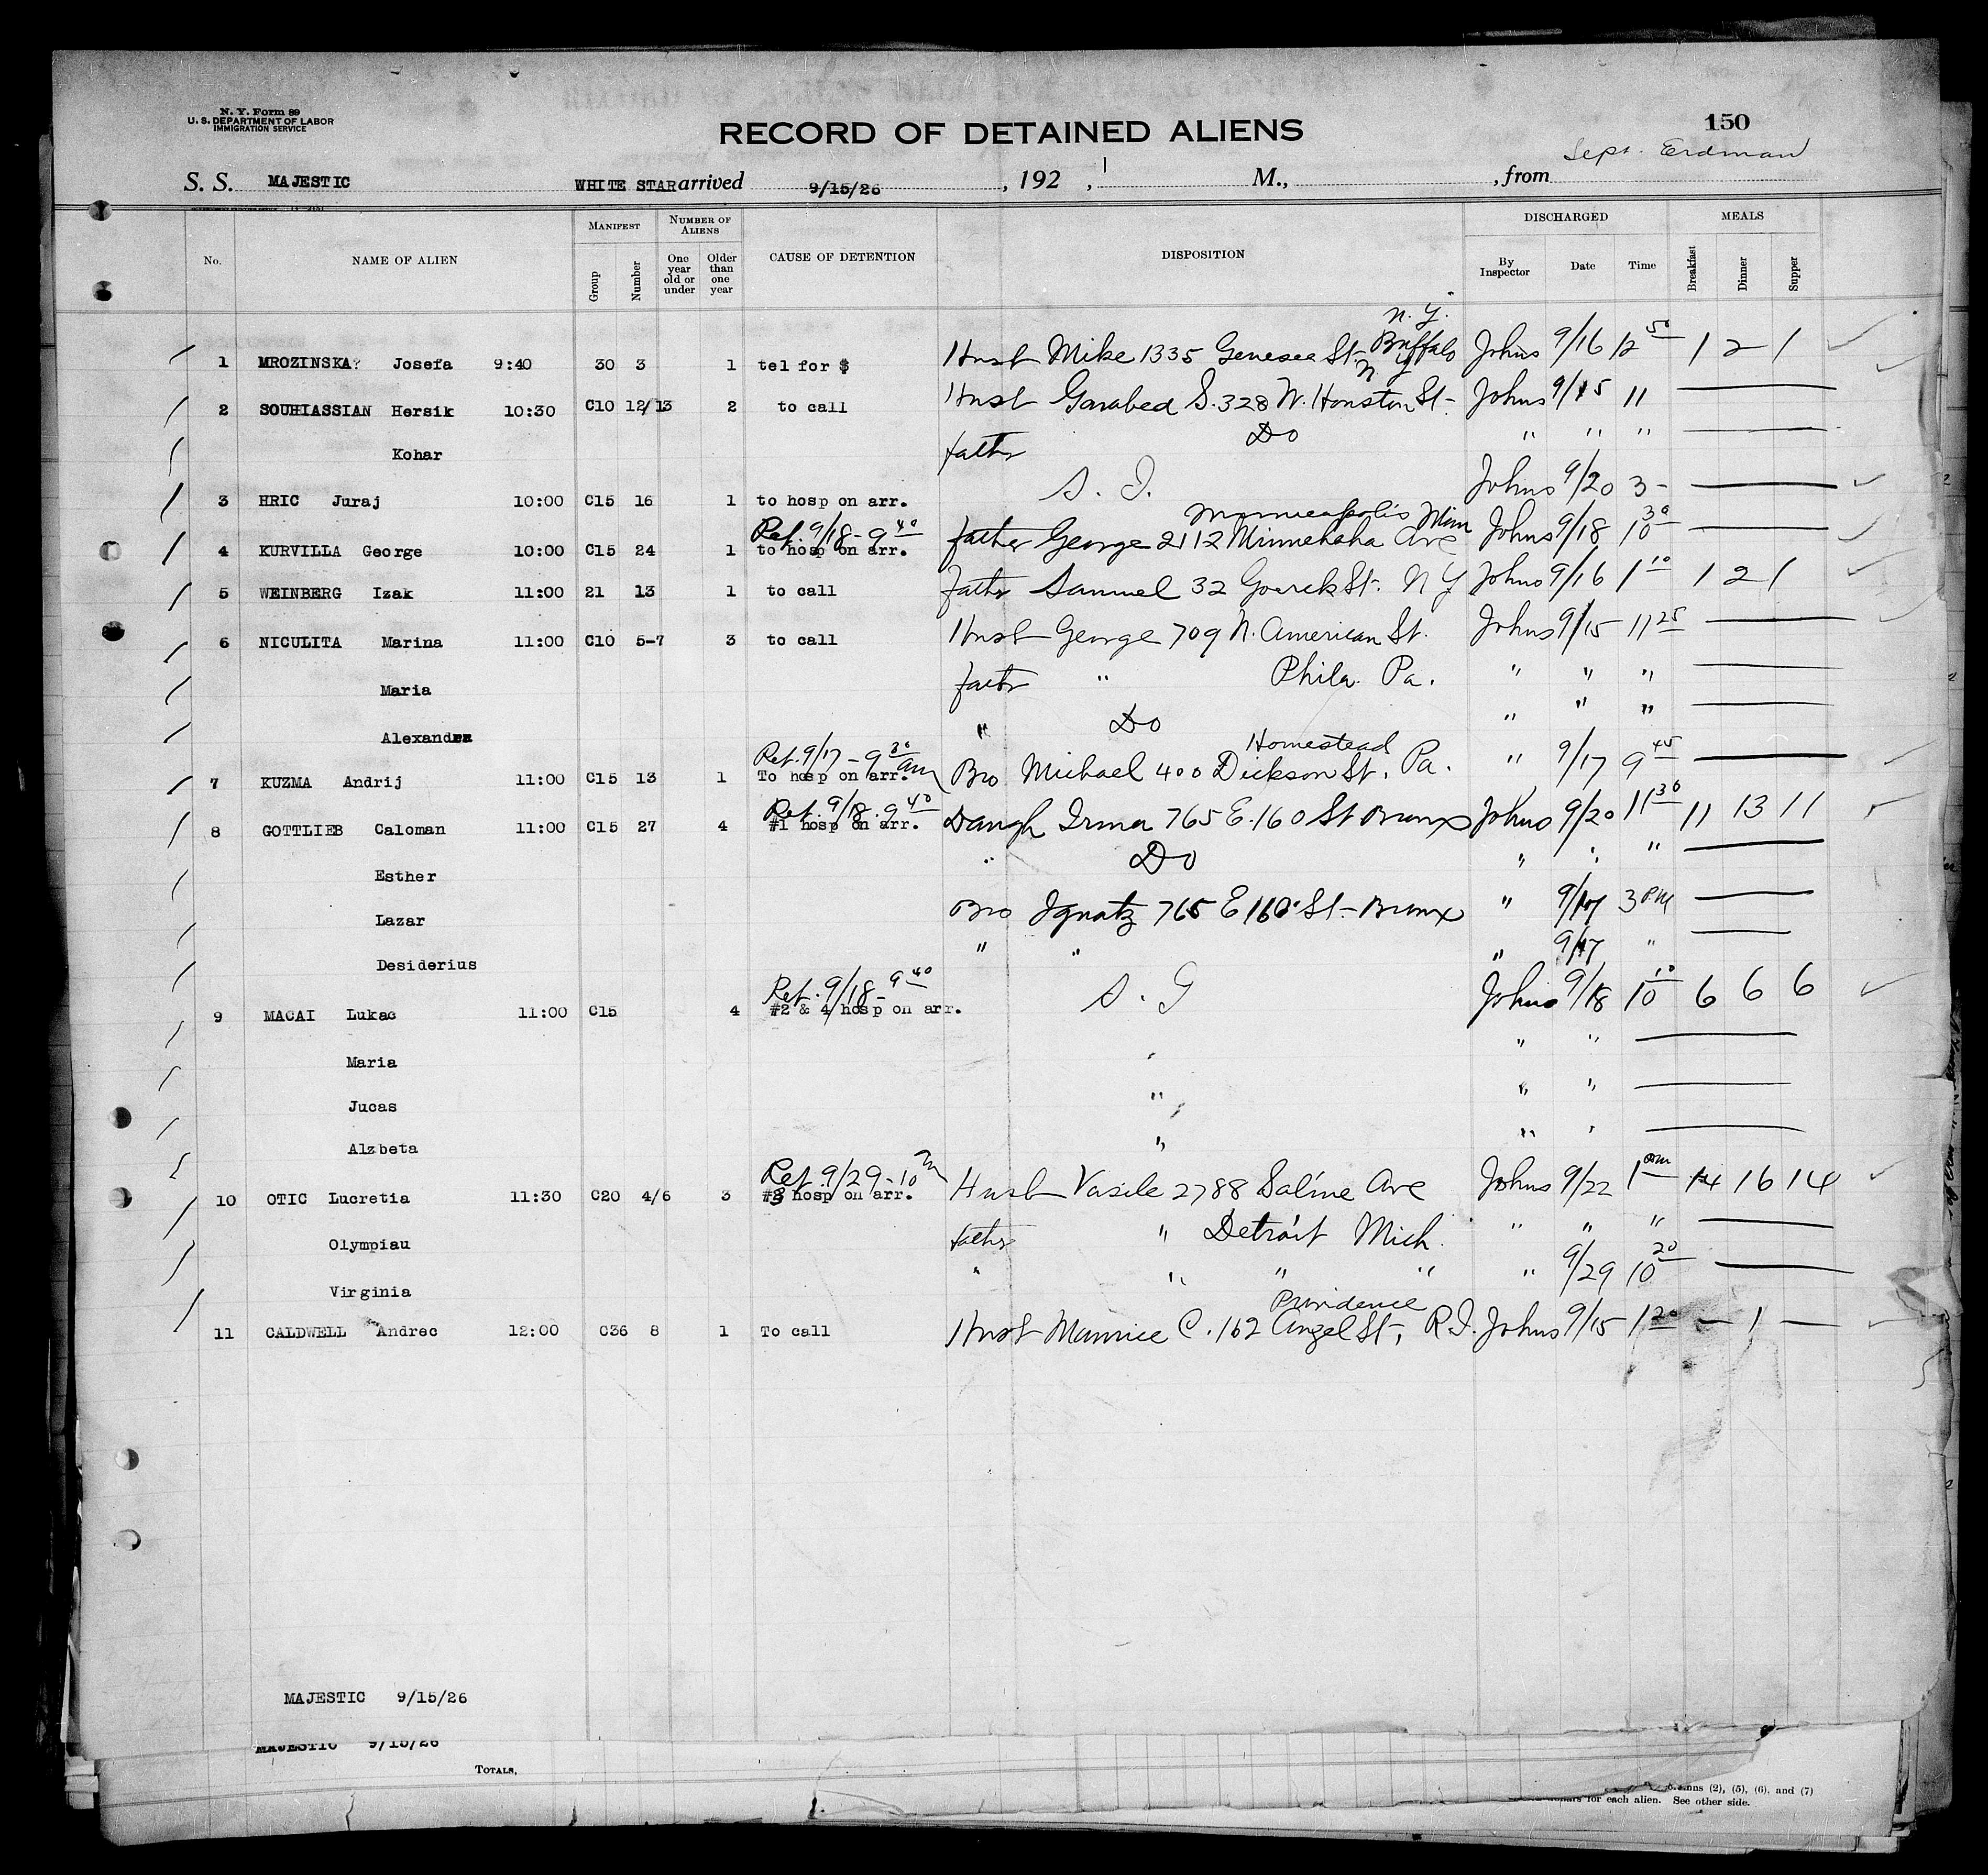 N. Y. Form 89
U. S. DEPARTMENT OF LABOR
IMMIGRATION SERVICE
RECORD OF DETAINED ALIENS
150
Erdman
S. S. MAJESTIC WHITE STAR arrived 9/15/26, 192 , M., , from
No. NAME OF ALIEN MANIFEST Group Number NUMBER OF ALIENS One year old or under Older than one year CAUSE OF DETENTION DISPOSITION DISCHARGED By Inspector Date Time MEALS Breakfast Dinner Supper
N. Y.
1 MROZINSKA? Josefa 9:40 30 3 1 tel for $ Husb Mike 1335 Genesee St- Buffalo Johns 9/16 12 50 1 2 1
N Y
2 SOUHIASSIAN Hersik 10:30 C10 12/13 2 to call Husb Garabed S. 328 W. Houston St- Johns 9/15 11
Kohar father Do " " "
3 HRIC Juraj 10:00 C15 16 1 to hosp on arr. S. I. Johns 9/20 3-
Ret. 9/18 - 9 40 Minneapolis Minn
4 KURVILLA George 10:00 C15 24 1 to hosp on arr. father George 2112 Minnehaha Ave Johns 9/18 10 30
5 WEINBERG Izak 11:00 21 13 1 to call father Samuel 32 Goerck St. N Y Johns 9/16 1 10 1 2 1
6 NICULITA Marina 11:00 C10 5-7 3 to call Husb George 709 N. American St. Johns 9/15 11 25
Maria father " Phila. Pa. " " "
Alexandra " Do " " "
Ret. 9/17 - 9 30 am Homestead
7 KUZMA Andrij 11:00 C15 13 1 To hosp on arr. Bro Michael 400 Dickson St. Pa. " 9/17 9 45
Ret. 9/18. 9 40
8 GOTTLIEB Caloman 11:00 C15 27 4 #1 hosp on arr. Daugh Irma 765 E. 160 St Bronx Johns 9/20 11 30 11 13 11
Esther " Do " " "
Lazar Bro Ignatz 765 E 160 St- Bronx " 3 P.M
Desiderius " " " 9/17 "
Ret. 9/18 - 9 40
9 MACAI Lukac 11:00 C15 4 #2 & 4 hosp on arr. Johns 9/18 10 10 6 6 6
Maria " " "
Jucas " " "
Alzbeta " " "
Ret. 9/29 - 10
10 OTIC Lucretia 11:30 C20 4/6 3 #3 hosp on arr. Husb Vasile 2788 Saline Ave Johns 9/22 1 14 16 14
Olympiau father " Detroit Mich. " " "
Virginia " " " " " 9/29 10 20
Providence
11 CALDWELL Andrec 12:00 C36 8 1 To call Husb Maurice C. 162 Angel St, R.I. Johns 9/15 1 20 — 1 —
MAJESTIC 9/15/26
MAJESTIC 9/15/26
TOTALS,
(2), (5), (6), and (7)
for each alien. See other side.